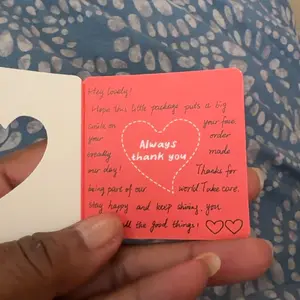 Hey lovely!
Hope this little package puts a big
smile on your face
your order
Always
thank you
totally made
our day! Thanks for
being part of our world Take care.
Stay happy and keep shining. you
all the good things!